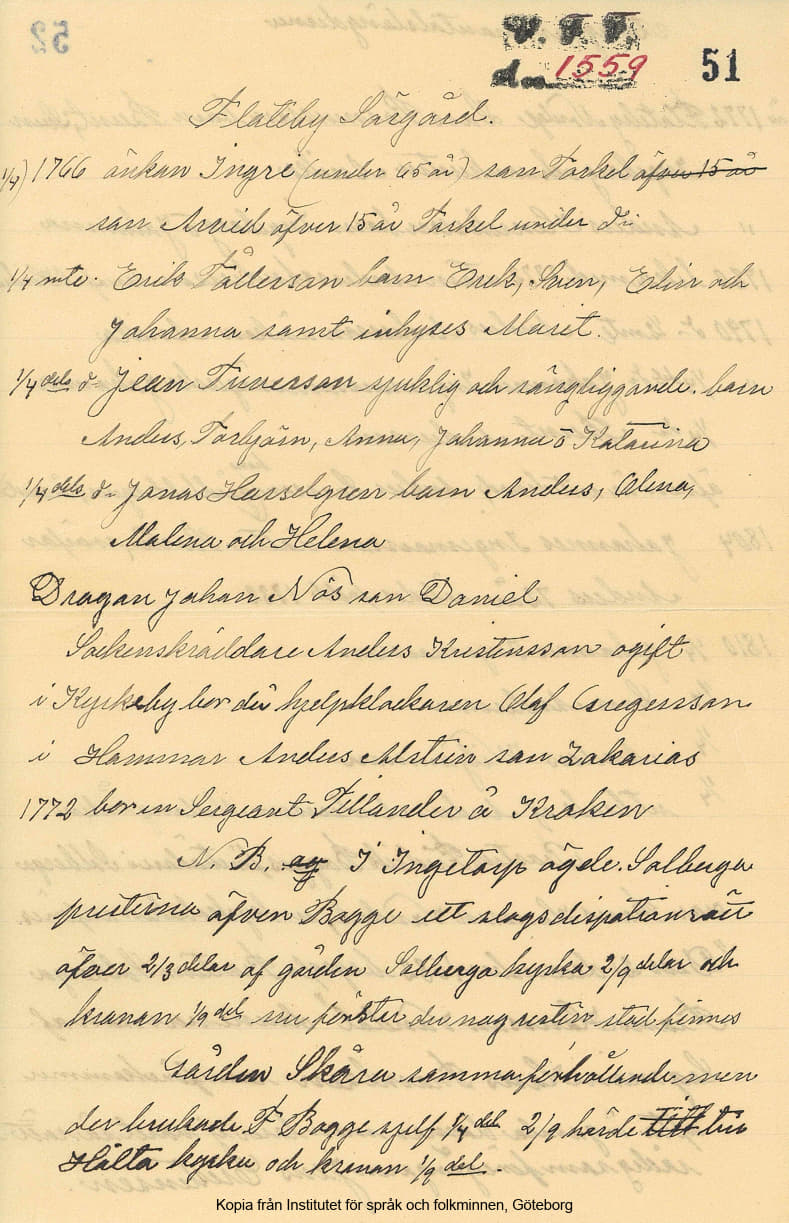 52
V. F. F.
d. 1559
51
Flateby Sörgård.
1/4) 1766 änkan Ingre (under 65 år) son Torkel öfver 15 år
son Arvid öfver 15 år Torkel under d:
1/4 mtl. Erik Tollesson barn Erek, Sven, Elin och
Johanna samt inhyses Marit.
1/4 dels d: Jean Tuvesson sjuklig och sängliggande. barn
Anders, Torbjörn, Anna, Johanna o Katarina
1/4 dels d: Jonas Hasselgren barn Anders, Olena,
Malena och Helena
Dragon Johan Nös son Daniel
Sockenskräddare Anders Kristensson ogift
i Kyrkeby bor då hjelpklockaren Olof Gregersson
i Hammar Anders Alstrin son Zakarias
1772 bor en Sergeant Tillander å Kroken
N. B. I Ingetorp ägde Solberga
presterna äfven Bagge ett slags dispotionsrätt
öfver 2/3 delar af gården Solberga kyrka 2/9 delar och
kronan 1/9 del nu der nog stod finnes
Gården Skåra samma förhållande men
der brukade F Bagge sjelf 1/4 del 2/9 hörde till
Hålta kyrka och kronan 1/9 del.
Kopia från Institutet för språk och folkminnen, Göteborg